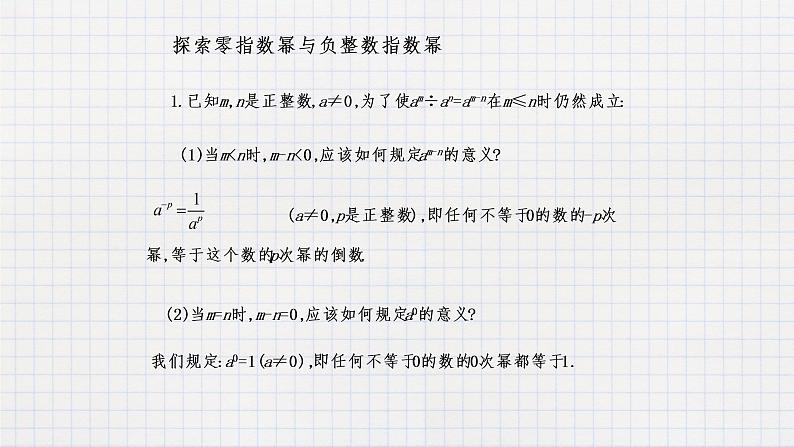 探索零指数幂与负整数指数幂
1.已知m,n是正整数,a≠0,为了使aᵐ÷aⁿ=aᵐ⁻ⁿ在m≤n时仍然成立:
(1)当m<n时,m-n<0,应该如何规定aᵐ⁻ⁿ的意义?
a⁻ᵖ=1/aᵖ (a≠0,p是正整数),即任何不等于0的数的-p次
幂,等于这个数的p次幂的倒数
(2)当m=n时,m-n=0,应该如何规定a⁰的意义?
我们规定:a⁰=1(a≠0),即任何不等于0的数的0次幂都等于1.